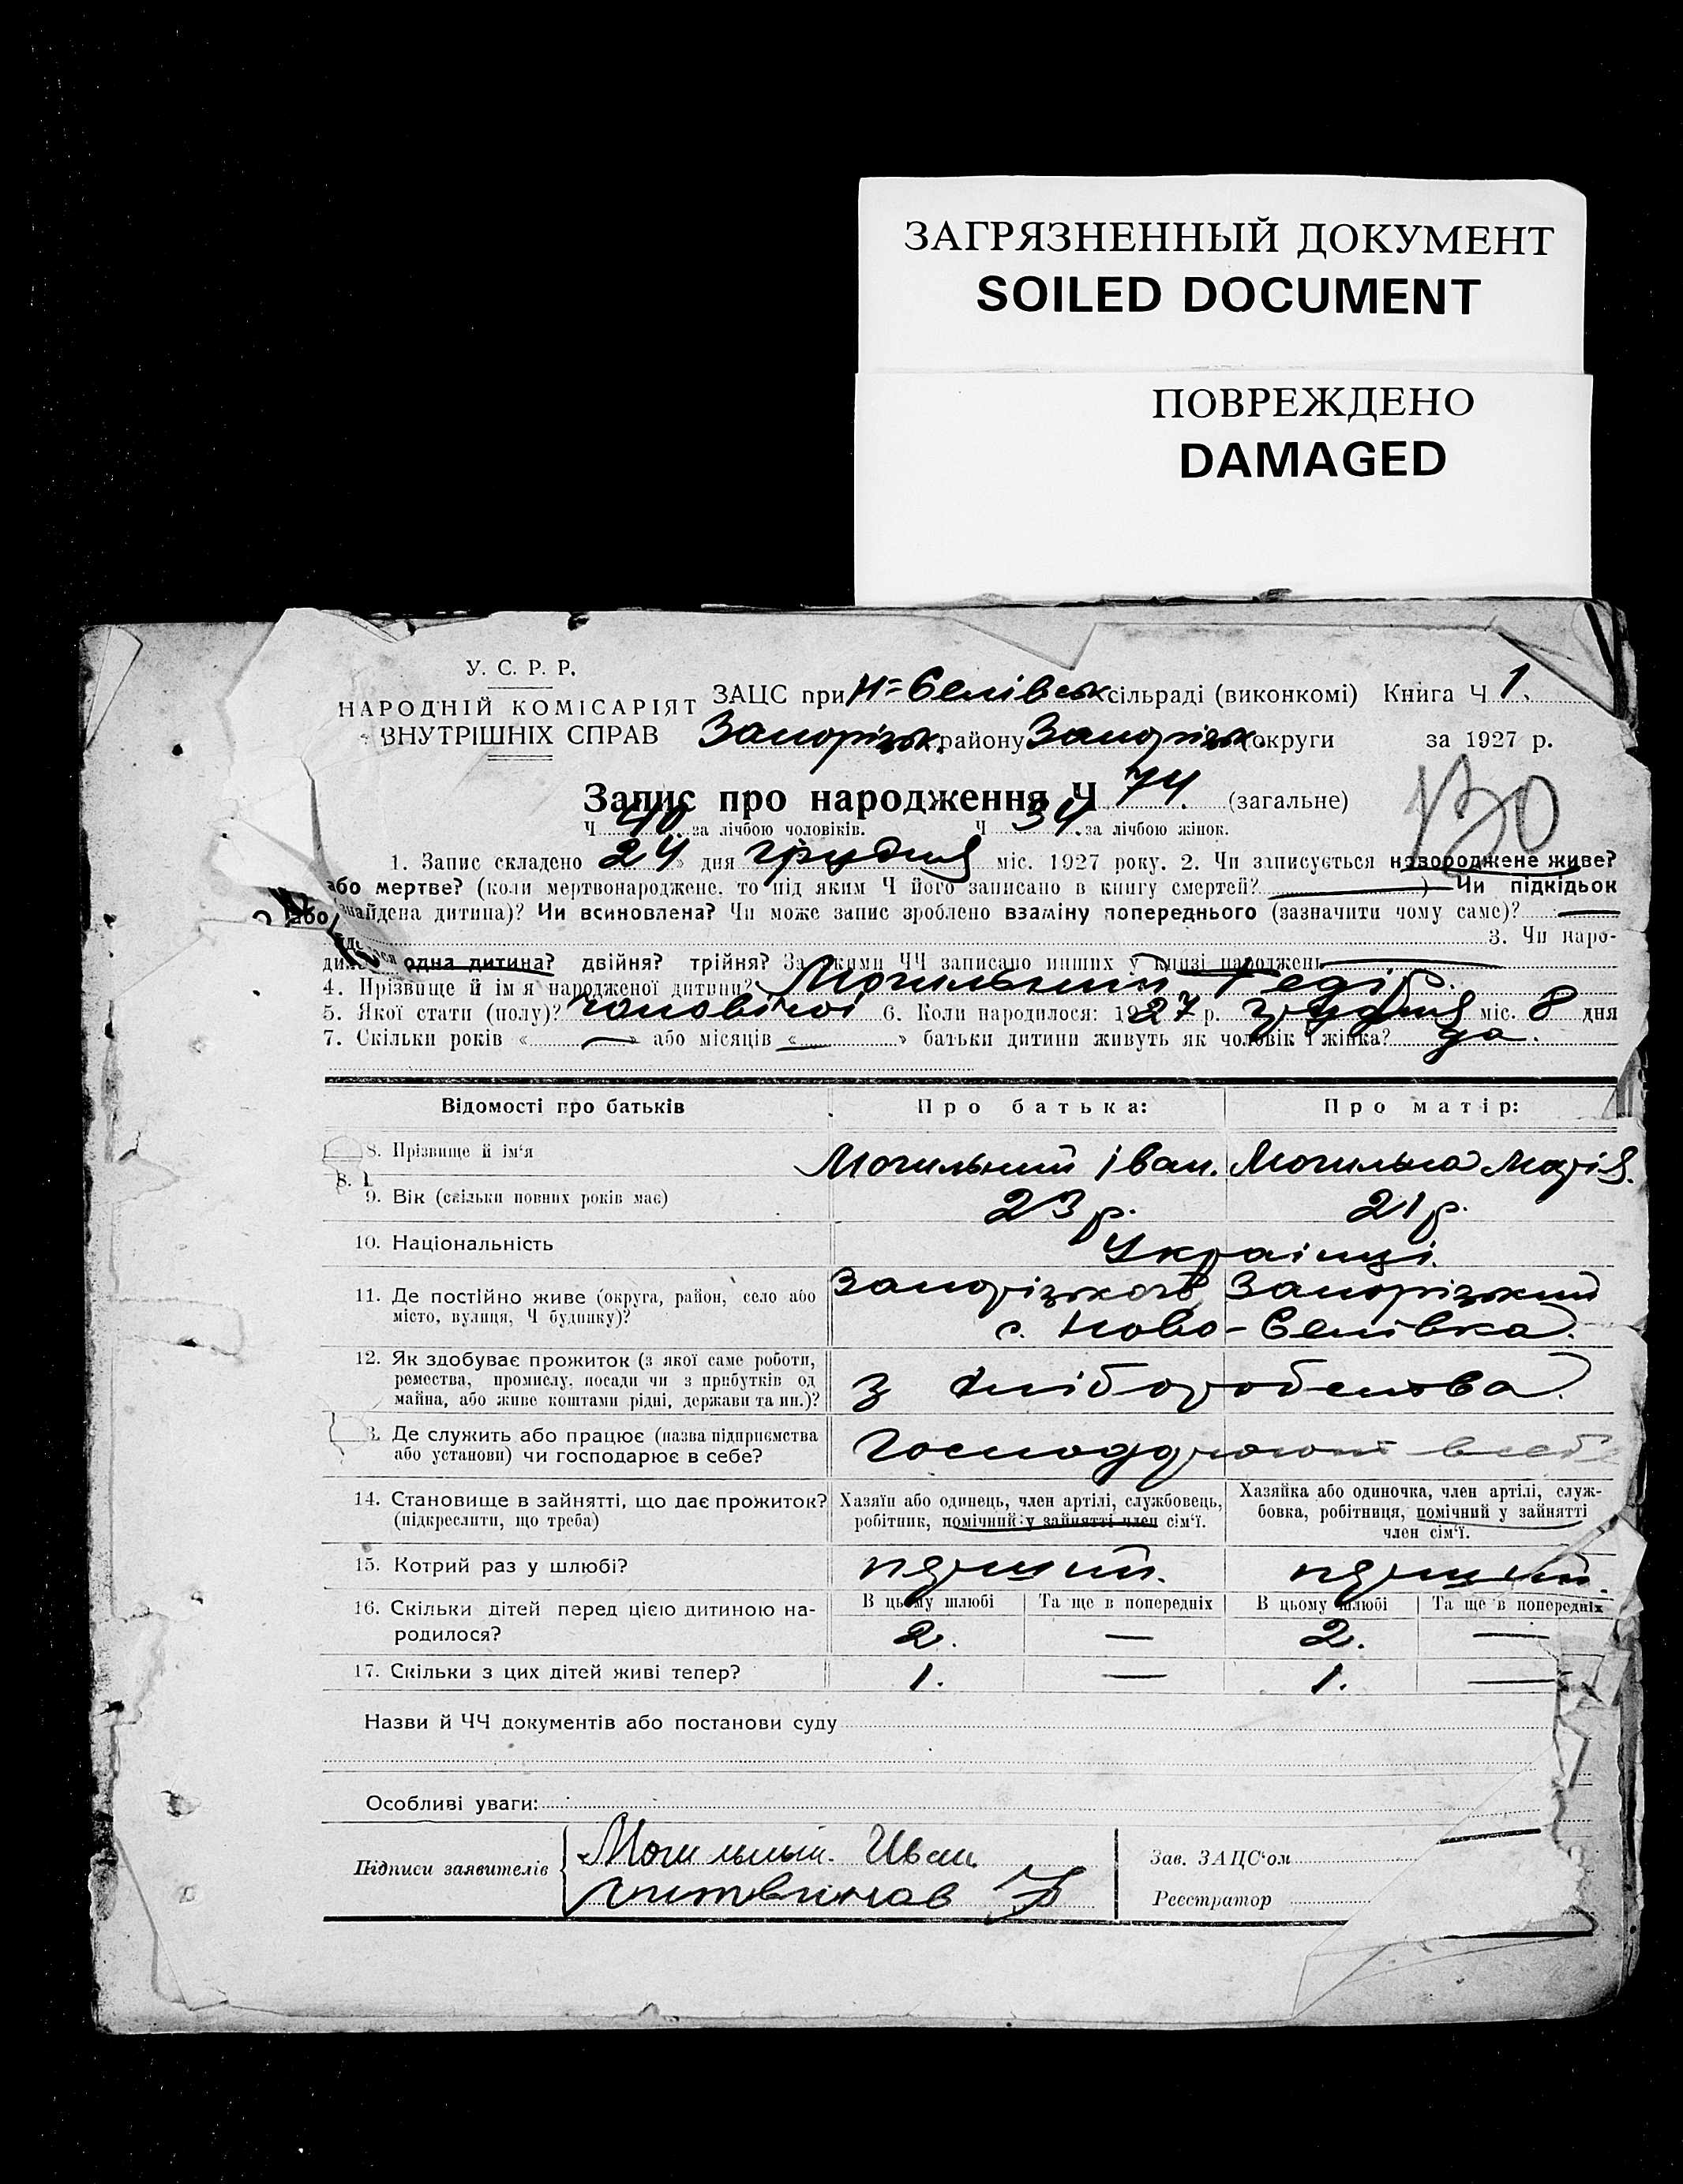 ЗАГРЯЗНЕННЫЙ ДОКУМЕНТ
SOILED DOCUMENT
ПОВРЕЖДЕНО
DAMAGED
У. С. Р. Р.
НАРОДНІЙ КОМІСАРІЯТ
ВНУТРІШНІХ СПРАВ
ЗАЦС при Н-Селівськ сільраді (виконкомі) Книга Ч 1.
Запорізьк. району Запорізьк. округи за 1927 р.
Запис про народження Ч 74. (загальне)
130
Ч 40 за лічбою чоловіків. Ч 34 за лічбою жінок.
1. Запис складено 24» дня грудня міс. 1927 року. 2. Чи записується новороджене живе?
або мертве? (коли мертвонароджене, то під яким Ч його записано в книгу смертей? ) Чи підкідьок
або знайдена дитина)? Чи всиновлена? Чи може запис зроблено взаміну попереднього (зазначити чому саме)?
3. Чи наро-
дилася одна дитина? двійня? трійня? За якими ЧЧ записано инших у книзі народжень
4. Прізвище й ім'я народженої дитини? Могильний Федір.
5. Якої стати (полу)? чоловічої 6. Коли народилося: 1927 р. грудня міс. 8 дня
7. Скільки років « » або місяців « » батьки дитини живуть як чоловік і жінка? да.
Відомості про батьків Про батька: Про матір:
8. Прізвище й ім'я Могильний Іван. Могильна Марія.
9. Вік (скільки повних років має) 23 р. 21 р.
10. Національність Українці.
11. Де постійно живе (округа, район, село або Запорізького Запорізький
місто, вулиця, Ч будинку)? с. Ново-Селівка.
12. Як здобуває прожиток (з якої саме роботи,
ремества, промислу, посади чи з прибутків од з хліборобства.
майна, або живе коштами рідні, держави та ин.)?
3. Де служить або працює (назва підприємства Господарюють в себе
або установи) чи господарює в себе?
14. Становище в зайнятті, що дає прожиток? Хазяїн або одинець, член артілі, службовець, Хазяйка або одиночка, член артілі, служ-
(підкреслити, що треба) робітник, помічний у зайнятті член сім'ї. бовка, робітниця, помічний у зайнятті
член сім'ї.
15. Котрий раз у шлюбі? перший. перший.
16. Скільки дітей перед цією дитиною на- В цьому шлюбі Та ще в попередніх В цьому шлюбі Та ще в попередніх
родилося? 2. — 2. —
17. Скільки з цих дітей живі тепер? 1. — 1. —
Назви й ЧЧ документів або постанови суду
Особливі уваги:
Підписи заявителів Могильный Иван Зав. ЗАЦС'ом
Реєстратор